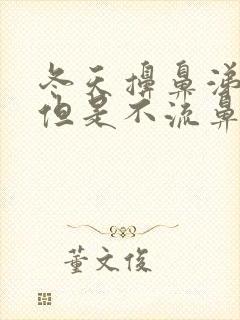 冬天擤鼻涕
但是不流鼻
董文俊